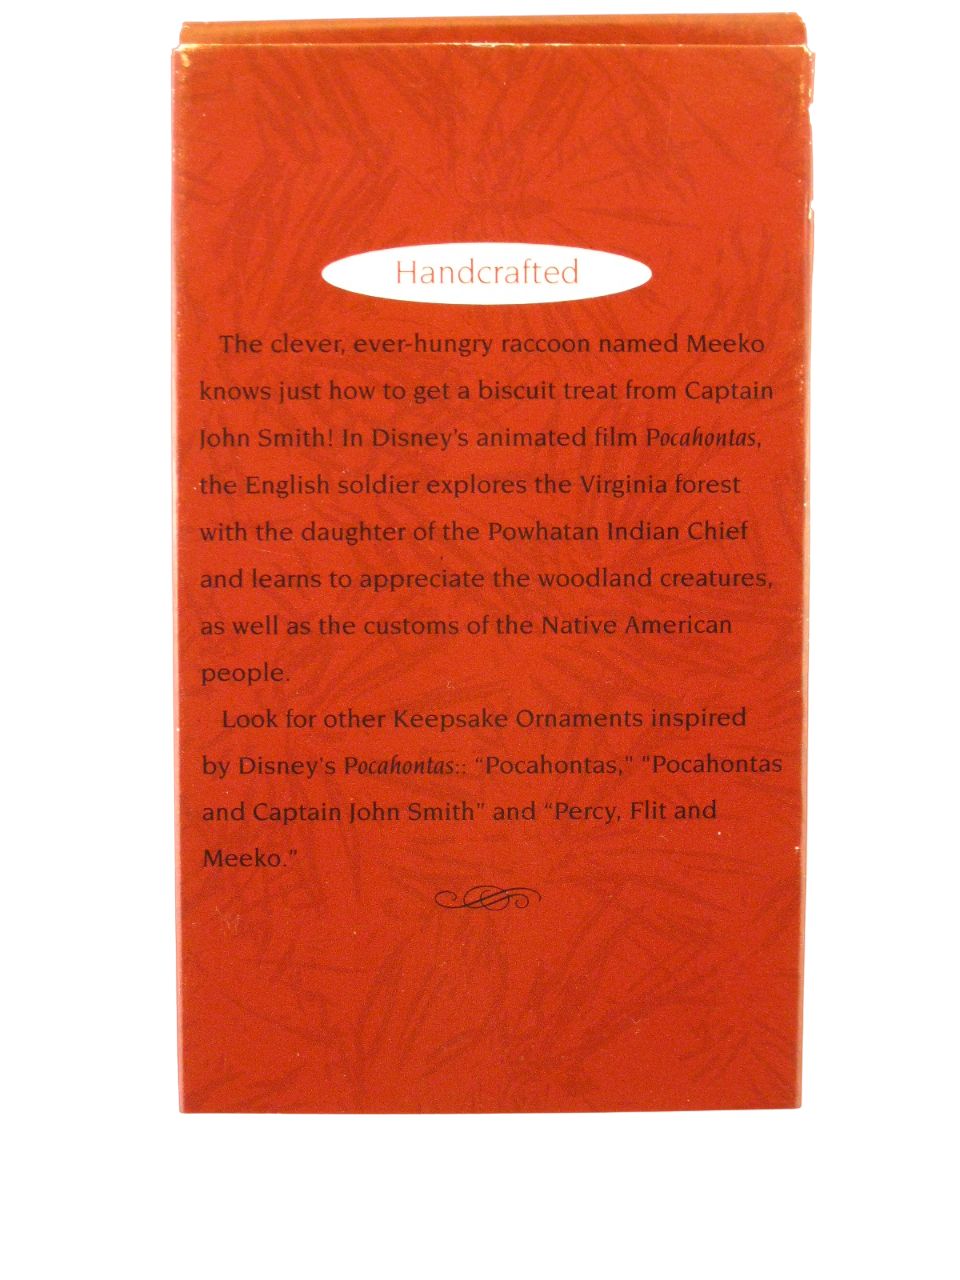 Handcrafted
The clever, ever-hungry raccoon named Meeko
knows just how to get a biscuit treat from Captain
John Smith! In Disney's animated film Pocahontas,
the English soldier explores the Virginia forest
with the daughter of the Powhatan Indian Chief
and learns to appreciate the woodland creatures,
as well as the customs of the Native American
people.
Look for other Keepsake Ornaments inspired
by Disney's Pocahontas:: “Pocahontas," "Pocahontas
and Captain John Smith” and “Percy, Flit and
Meeko.”